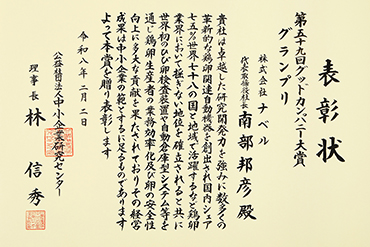 表彰状
第五十九回グッドカンパニー大賞
グランプリ
株式会社 ナベル
代表取締役社長 南部邦彦殿
貴社は卓越した研究開発力を強みに数多くの
革新的な鶏卵関連自動機器を創出され国内シェア
七五%世界七十八の国と地域で活躍するなど鶏卵
業界において揺ぎない地位を確立されると共に
世界初のひび卵検査装置や自動倉庫型システム等を
通じ鶏卵生産者の業務効率化及び卵の安全性
向上に多大な貢献を果たされておりその経営
成果は中小企業の範とするに足るものであります
よって本賞を贈り表彰します
令和八年二月二日
公益社団法人中小企業研究センター
理事長 林信秀